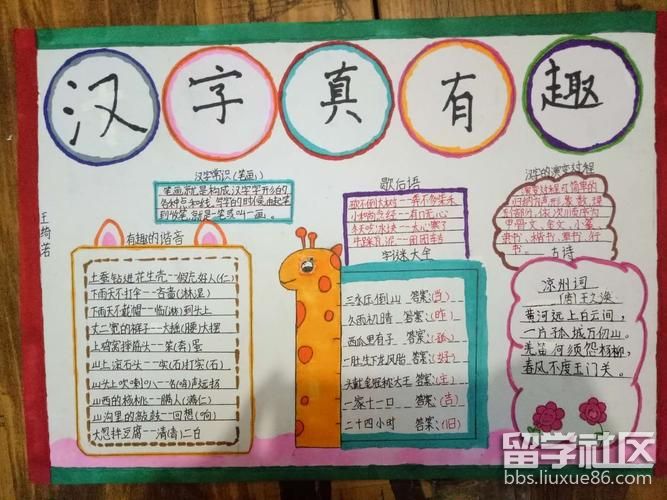 汉字真有趣
汉字常识(笔画)
笔画就是构成汉字字形的
各种点和线,写字的时侯由起笔
到收笔,就是一笔或叫一画。
歇后语
汉字的演变过程
甲骨文、金文、小篆
隶书、楷书、草书、行
书。
王绮若
有趣的谐音
土蚕钻进花生壳--假充好人(仁)
下雨天不打伞--吝啬(淋湿)
下雨天戴帽--临(淋)到头上
丈二宽的裤子--大推(腰)大摆
上鸡窝摔筋头--笨(奔)蛋
山上滚石头--实(石)打实(石)
山头上吹喇叭--名(鸣)声远扬
山西的核桃--瞒人(满仁)
山沟里的敲鼓--回想(响)
大葱拌豆腐--清(青)二白
字谜大全
三水压倒山 答案:(当)
久雨初晴 答案:(昨)
西瓜里有子 答案:(孤)
一肚生下龙凤胎 答案:(好)
头戴金冠称大王 答案:(主)
一家十一口 答案:(吉)
二十四小时 答案:(旧)
古诗
凉州词
(唐)王之涣
黄河远上白云间,
一片孤城万仞山。
羌笛何须怨杨柳,
春风不度玉门关。
留学社区
bbs.liuxue86.com